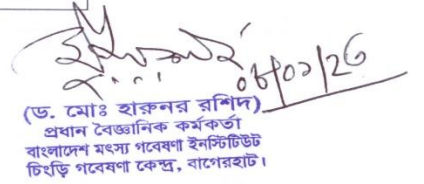 ০৮/০১/26
(ড. মোঃ হারুনর রশিদ)
প্রধান বৈজ্ঞানিক কর্মকর্তা
বাংলাদেশ মৎস্য গবেষণা ইনস্টিটিউট
চিংড়ি গবেষণা কেন্দ্র, বাগেরহাট।